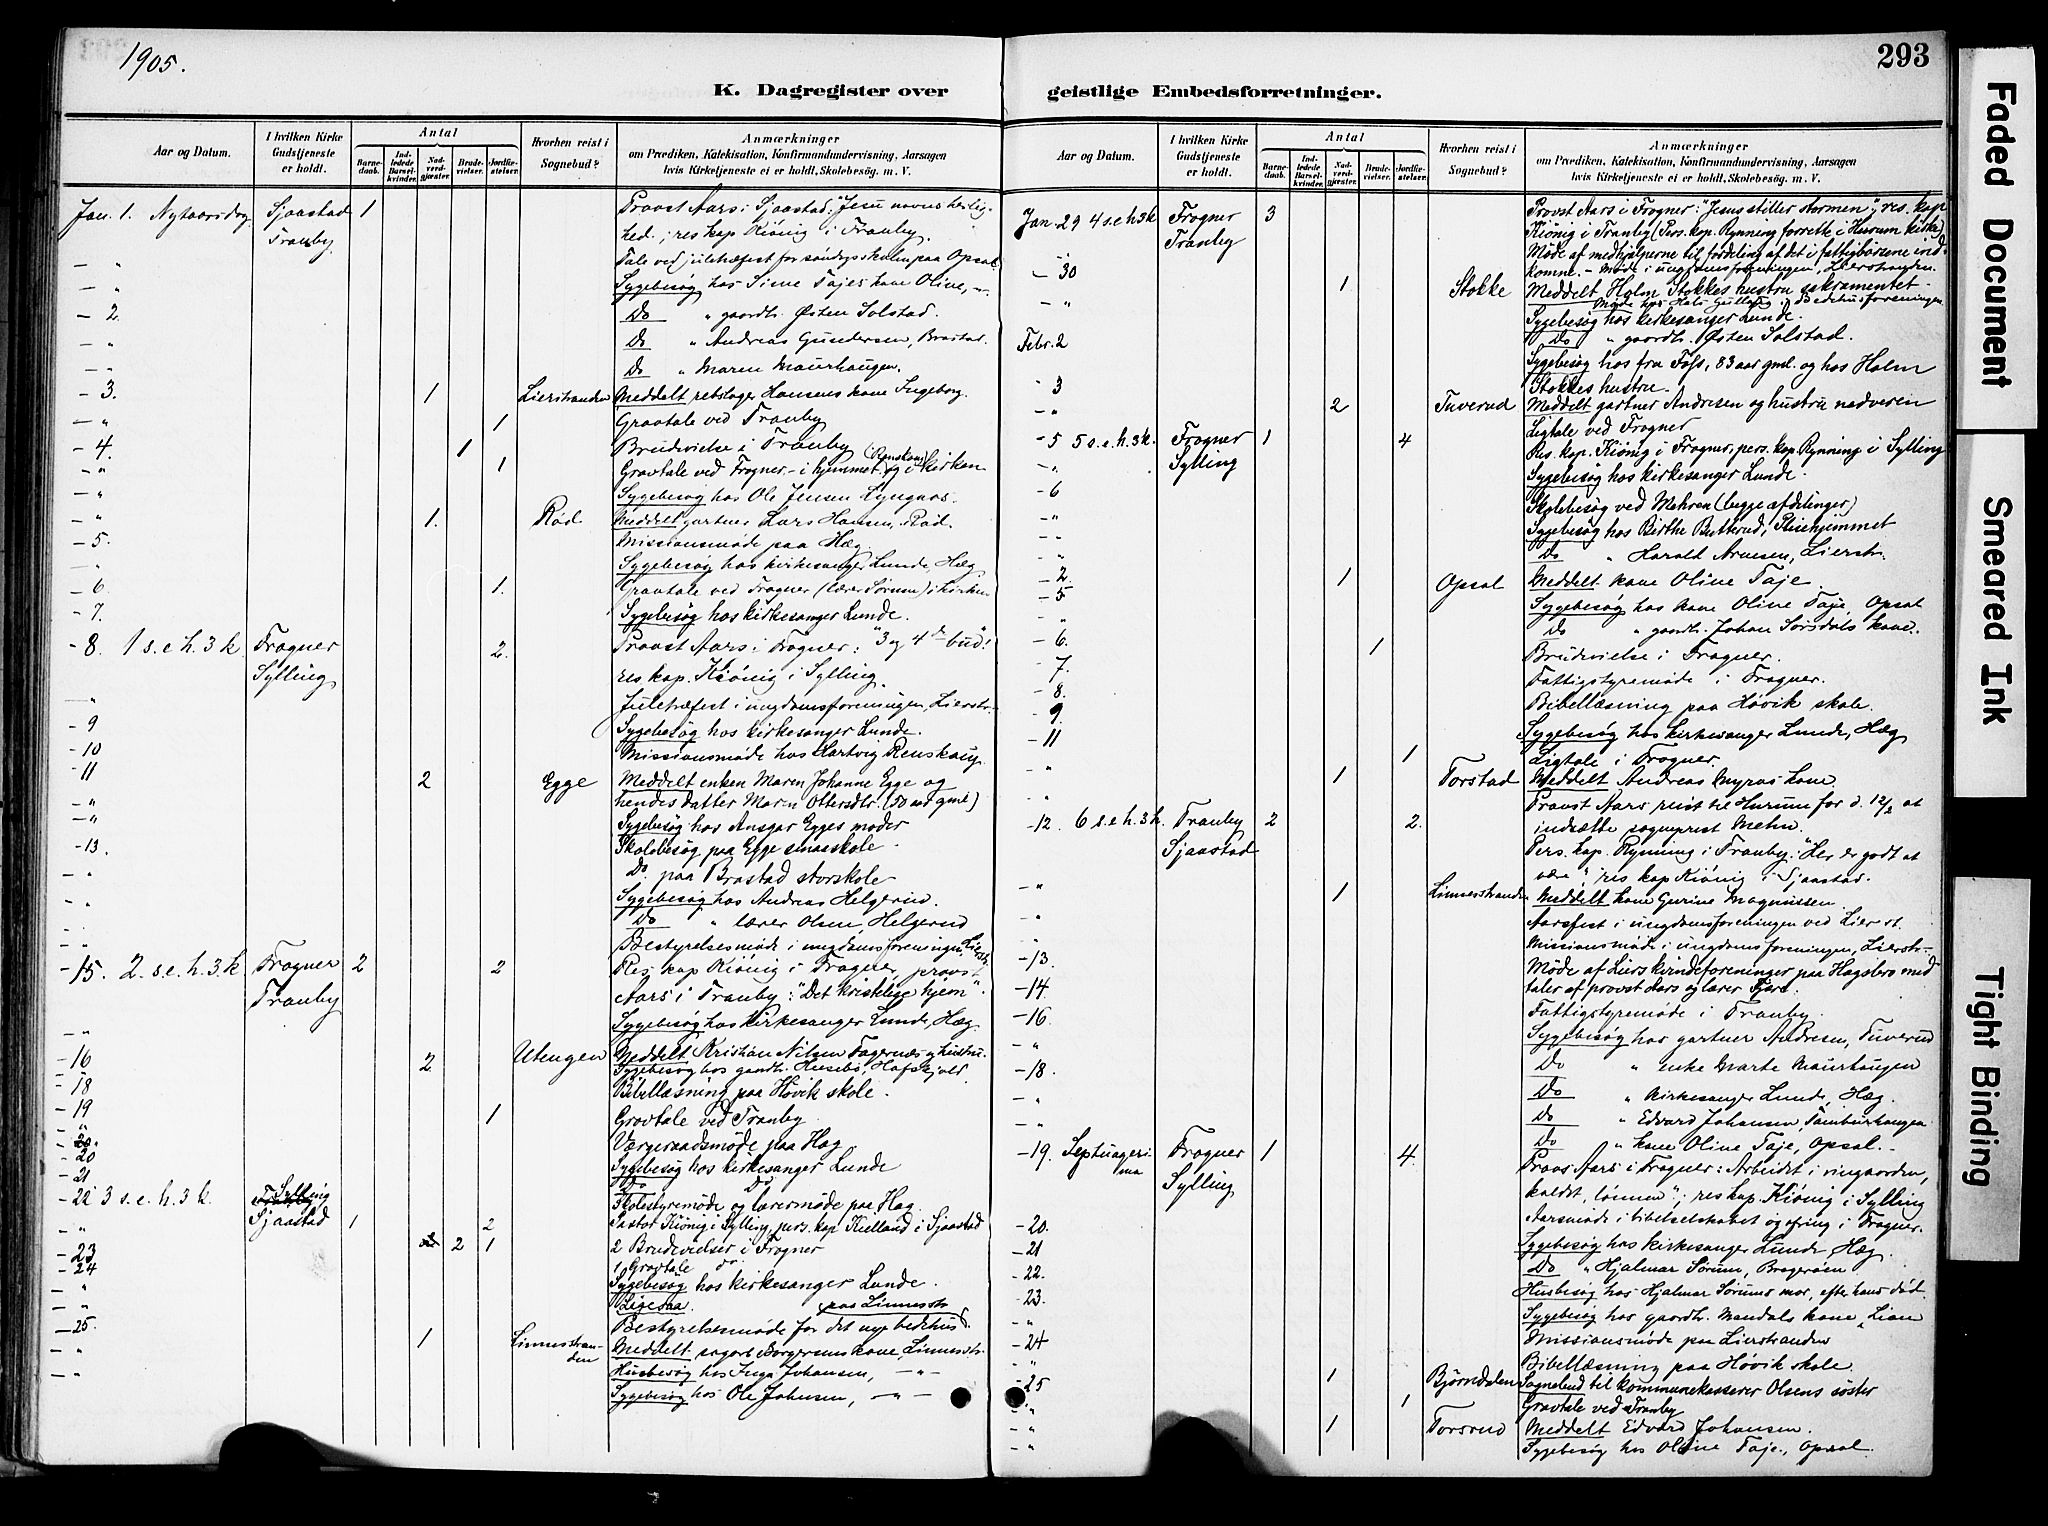 1905.
293
K. Dagregister over geistlige Embedsforretninger.
Aar og Datum.
I hvilken Kirke Gudstjeneste er holdt.
Antal
Barnedaab.
Indledede Barselkvinder.
Nadverdgjæster.
Brudevielser.
Jordfæstelser.
Hvorhen reist i Sognebud?
Anmærkninger
om Prædiken, Katekisation, Konfirmandundervisning, Aarsagen
hvis Kirketjeneste ei er holdt, Skolebesøg. m. V.
Jan. 1. Nytaarsdag Sjaastad 1 Provst Aars i Sjaastad: "Jesu navns hellig-
Tranby hed.; res kap Kiønig i Tranby.
— " Tale ved juletræfest for søndagsskolen paa Opsal
— " Sygebesøg hos Sine Tajes kone Olive, —"—
— 2. Do " gaardbr. Østen Solstad.
— " Do " Andreas Gundersen, Brastad.
— " Do " Maren Maurhaugen.
— 3. 1 Lierstranden Meddelt rebslager Hansens kone Ingeborg.
— " 1 Gravtale ved Tranby
— 4. 1 Brudevielse i Tranby
— " 1 Gravtale ved Frogner – i hjemmet (Renskaug) og i kirken
— " Sygebesøg hos Ole Jensen Lyngaas.
— " 1. Rød Meddelt gartner Lars Hansen, Rød.
— 5. Missionsmøde paa Hæg.
— " Sygebesøg hos kirkesanger Lunde, Hæg
— 6. 1. Gravtale ved Frogner (lærer Sørum) i kirken
— 7. Sygebesøg hos kirkesanger Lunde.
— 8. 1 s. e. h. 3 k Frogner 2. Provst Aars i Frogner: "3 og 4de bud"!
Sylling res. kap. Kiønig i Sylling.
— " Juletræfest i ungdomsforeningen, Lierstr.
— 9 Sygebesøg hos kirkesanger Lunde.
— 10 Missionsmøde hos Hartvig Renskaug
— 11 2 Egge Meddelt enken Maren Johanne Egge og
— " hendes datter Maren Ottersdtr. (50 aar gml)
— " Sygebesøg hos Ansgar Egges moder
— 13. Skolebesøg paa Egge smaaskole.
— " Do. paa Brastad storskole
— " Sygebesøg hos Andreas Helgerud.
— " Do " lærer Olsen, Helgerud
— " Bestyrelsesmøde i ungdomsforeningen, Lierstr.
— 15. 2. s. e. h. 3. k Frogner 2 2 Res. kap Kiønig i Frogner, provst
Tranby Aars i Tranby: "Det kristelige hjem".
— " Sygebesøg hos kirkesanger Lunde, Hæg.
— 16 2 Utengen Meddelt Kristian Nilsen Fagernæs og hustru.
— " Sygebesøg hos gaardbr. Husebø, Hafskjold
— 18 Bibellæsning paa Høvik skole.
— 19 1 Gravtale ved Tranby
— " Værgeraadsmøde paa Hæg
— 20 Sygebesøg hos kirkesanger Lunde
— 21 Do Do
Skolestyremøde og lærermøde paa Hæg
— 22 3 s. e. h. 3 k. Sylling
Sjaastad 1 2 Pastor Kiønig i Sylling, pers. kap Kielland i Sjaastad
— 23 2 1 2 Brudevielser i Frogner
— 24 1 Gravtale do.
— " Sygebesøg hos kirkesanger Lunde.
— " Ligesaa. paa Linnesstr
— 25. Bestyrelsesmøde for det nye bedehus
— " 1 Linnesstranden Meddelt sagarb. Borgersens kone, Linnesstr.
— " Husbesøg hos Inga Johansen, —"—
Sygebesøg hos Ole Johnsen, —"—
Jan. 29 4 s. e. h. 3 k Frogner 3 Provst Aars i Frogner: "Jesus stiller stormen", res. kap
Tranby Kiønig i Tranby (Pers. kap. Rynning forrette i Hurum kirke)
— 30 Møde af medhjælperne til fordeling af det i fattigbøssene ind-
komne. – Møde i ungdomsforeningen, Lierstranden.
— " 1 Stokke Meddelt Holm Stokkes hustru sakramentet –
Sygebesøg hos kirkesanger Lunde.
Febr. 2 Do " gaardbr. Østen Solstad.
Sygebesøg hos fru Foss, 83 aar gml. og hos Holm
— 3 Stokkes hustru.
— " 2 Tuverud Meddelt gartner Andresen og hustru nadveren
Ligtale ved Frogner
— 5 5 s. e. h. 3 k. Frogner 1 4 Res. kap. Kiønig i Frogner, pers. kap Rynning i Sylling
— " Sylling Sygebesøg hos kirkesanger Lunde.
— 6 Skolebesøg ved Mehren (begge afdelinger)
— " Sygebesøg hos Birthe Butterud, Pleiehjemmet
— " Do " Harald Arnesen, Lierstr.
— 2. 1 Opsal Meddelt kone Oline Taje.
— 5 Sygebesøg hos kone Oline Taje, Opsal
— " Do " gaardb. Johan Sørsdals kone.
— 6. 1 Brudevielse i Frogner.
— 7. Fattigstyremøde i Frogner.
— 8. Bibellæsning paa Høvik skole.
— 9. Sygebesøg hos kirkesanger Lunde, Hæg
— 11 1 Ligtale i Frogner.
— " 1 Torstad Meddelt Andreas Myras kone
— " Provst Aars reist til Hurum for d. 12/2 at
— 12. 6 s. e. h. 3 k. Tranby 2 2. indsætte sogneprest Mehn.
Sjaastad Pers. kap. Rynning i Tranby: "Her er godt at
være", res kap Kiønig i Sjaastad.
— " 1 Linnesstranden Meddelt kone Gurine Magnussen
— " Aarsfest i ungdomsforeningen ved Lier st.
— " Missionsmøde i ungdomsforeningen, Lierstr.
— 13. Møde af Liers kvindeforeninger paa Hagsbro med
— 14 taler af provst Aars og lærer Fjære.
— 16. Fattigstyremøde i Tranby.
— " Sygebesøg hos gartner Andresen, Tuverud
— 18. Do " enke Marte Maurhaugen
— " Do " kirkesanger Lunde, Hæg.
— " Do " Edvard Johansen, Tamburhaugen
Do " kone Oline Taje, Opsal. –
— 19. Septuagesima Frogner 1 4. Provs Aars i Frogner: Arbeidet i vingaarden,
Sylling kaldet, lønnen"; res kap. Kiønig i Sylling
— 20. Aarsmøde i bibelselskabet og ofring i Frogner.
— 21 Sygebesøg hos kirkesanger Lunde, Hæg.
— 22. Do " Hjalmar Sørum, Bragerøen
— 23. Husbesøg hos Hjalmar Sørums mor, efter hans død.
— " Sygebesøg hos gaardbr. Mandals kone, Lian
— 24 Missionsmøde paa Lierstranden
— " Bibellæsning paa Høvik skole
— 25 1 Bjørndalen Sognebud til kommunekasserer Olsens søster
— " 1 Gravtale ved Tranby
— " 1 Torsrud Meddelt Edvard Johansen.
— " Sygebesøg hos Oline Taje, Opsal.
Faded Document
Smeared Ink
Tight Binding